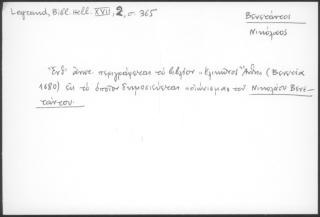 Legrand, Bibl. Hell. XVII, 2, σ. 365
Βενετάντος
Νικόλαος
Ἔνθ' ἀνωτ. περιγράφεται τὸ βιβλίον "Ἑλικῶνος Ἄνθη (Βενετία
1680) εἰς τὸ ὁποῖον δημοσιεύεται ποίημα τοῦ Νικολάου Βενε-
τάντου.